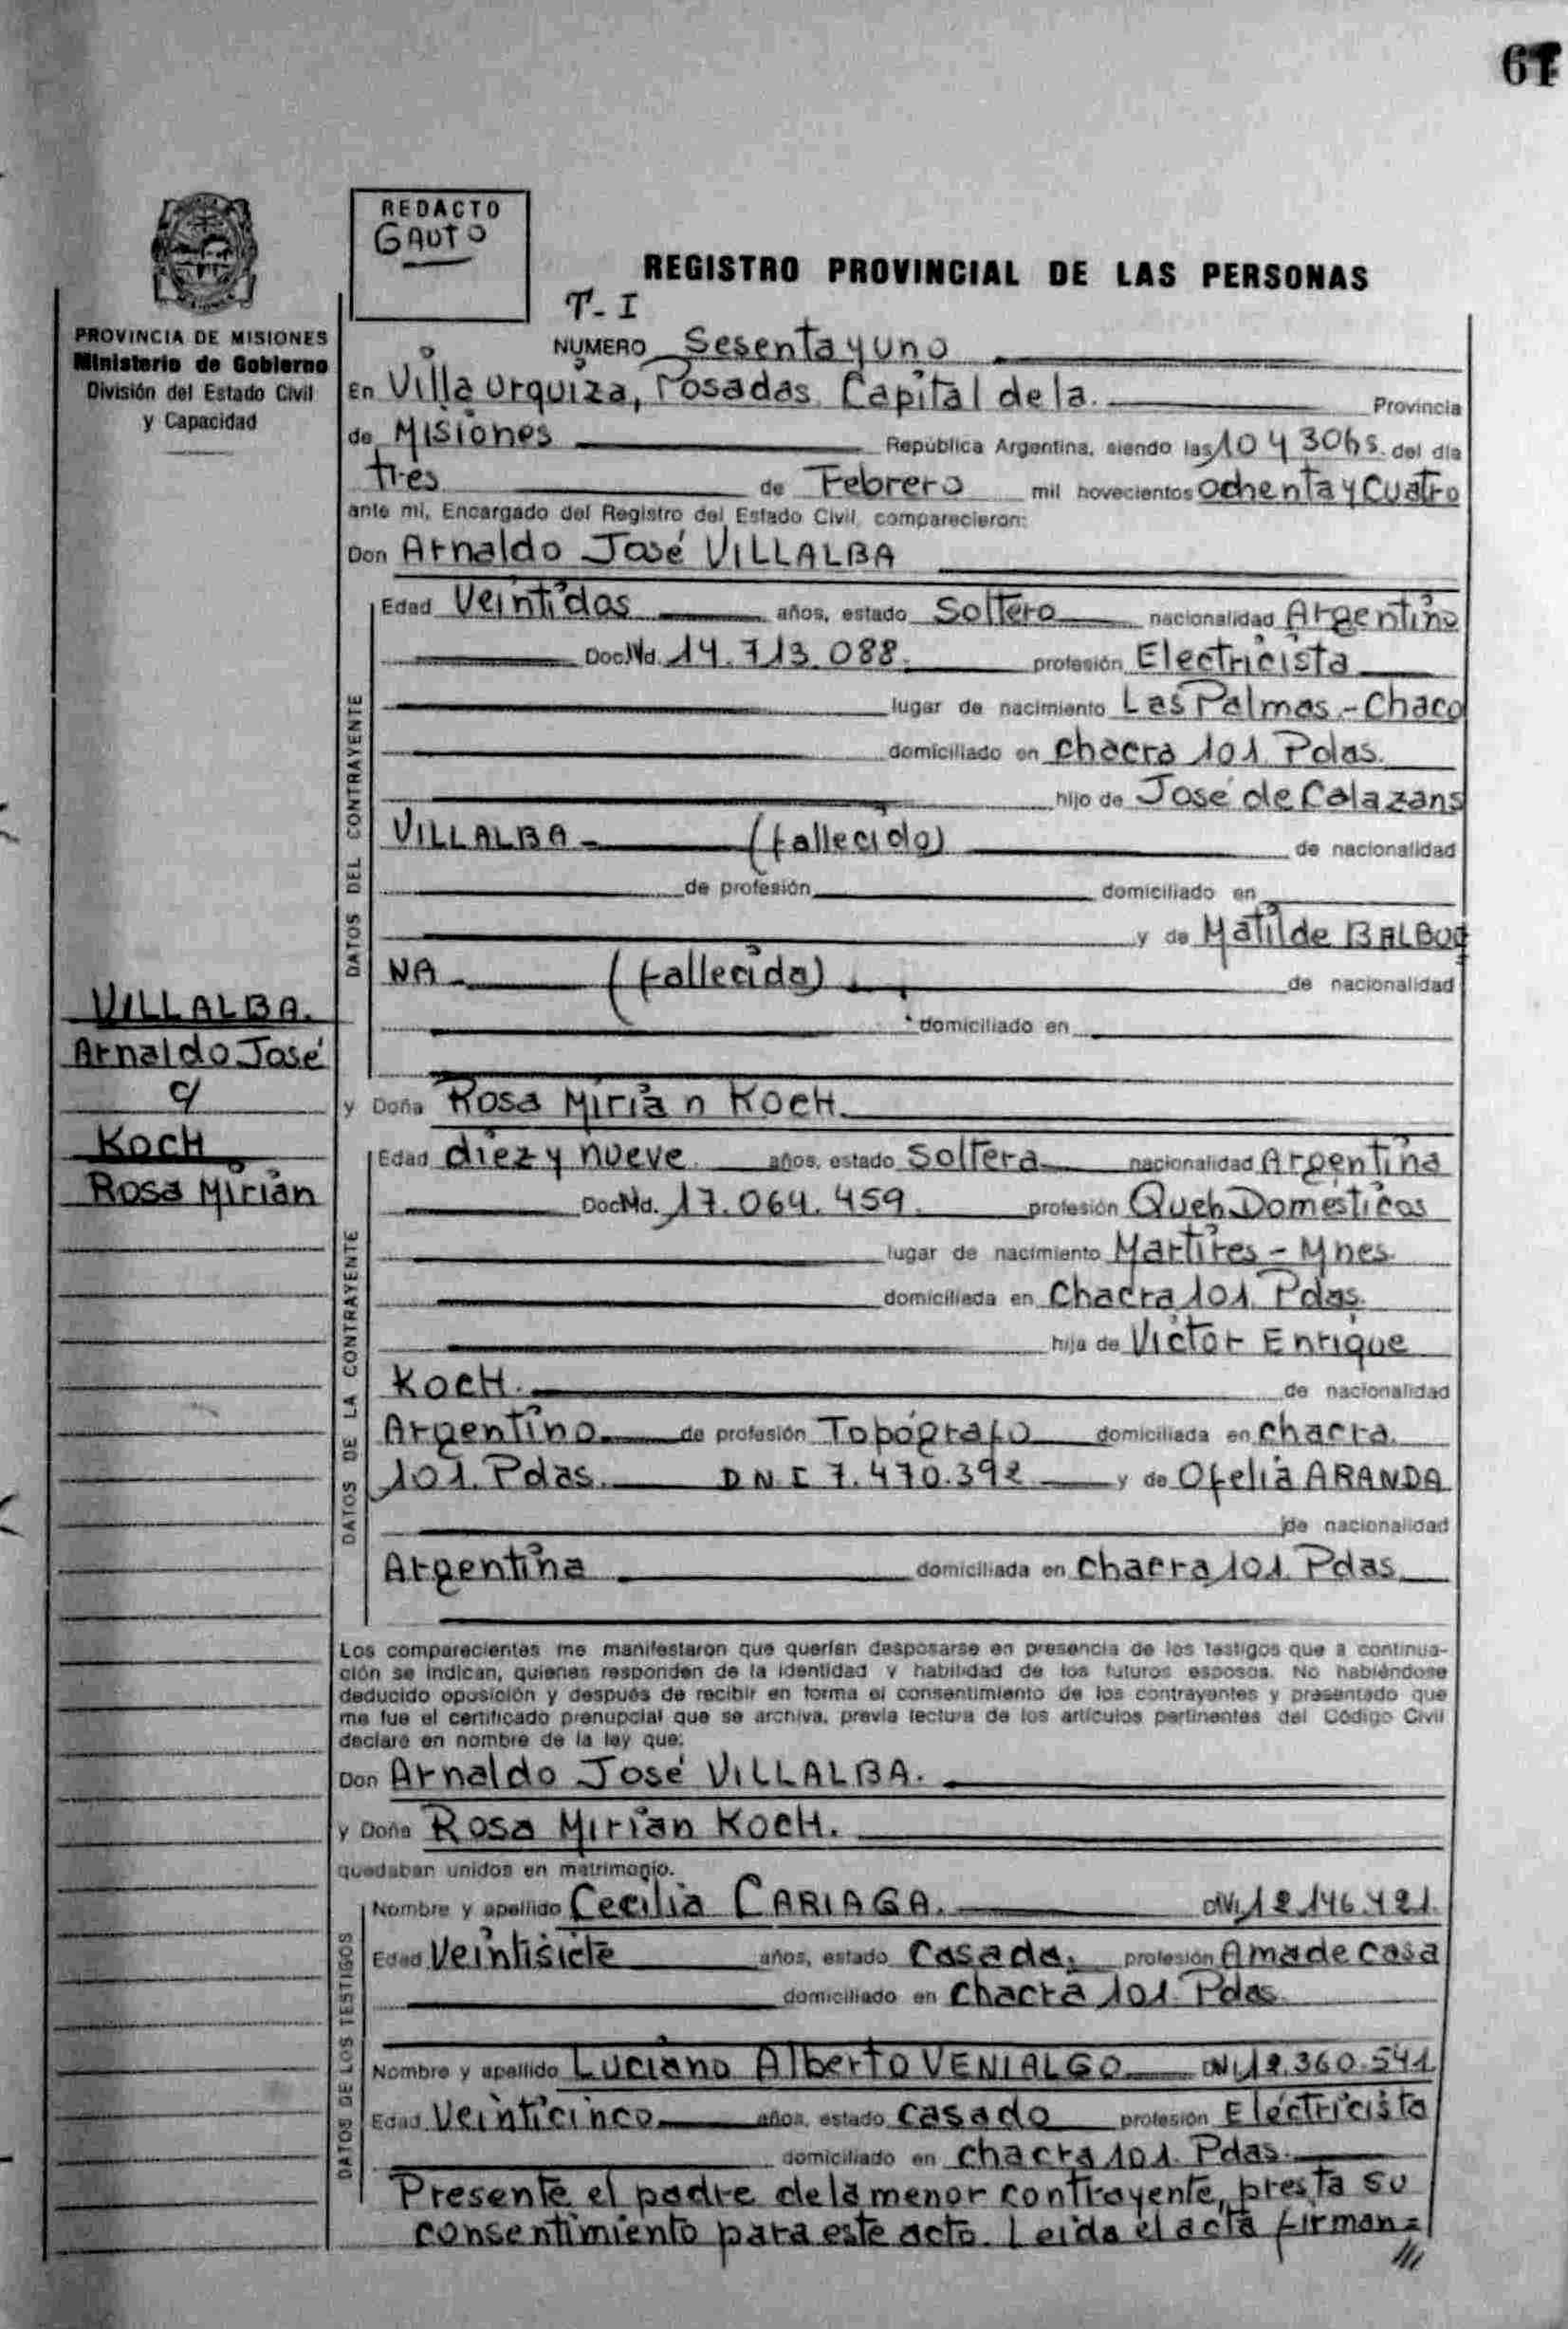 61
REDACTO
GAUTO
REGISTRO PROVINCIAL DE LAS PERSONAS
T-I
PROVINCIA DE MISIONES
Ministerio de Gobierno
División del Estado Civil
y Capacidad
NUMERO Sesenta y uno
En Villa Urquiza, Posadas Capital de la Provincia
de Misiones República Argentina, siendo las 10 y 30 hs. del día
tres de Febrero mil novecientos ochenta y cuatro
ante mi, Encargado del Registro del Estado Civil, comparecieron:
Don Arnaldo José VILLALBA
DATOS DEL CONTRAYENTE
Edad Veintidos años, estado Soltero nacionalidad Argentino
Doc. Nd. 14.713.088. profesión Electricista
lugar de nacimiento Las Palmas.- Chaco
domiciliado en chacra 101. Pdas.
hijo de José de Calazans
VILLALBA (fallecido) de nacionalidad
de profesión domiciliado en
y de Matilde BALBUE
NA (fallecida) de nacionalidad
domiciliado en
VILLALBA.
Arnaldo José
c/
KOCH
Rosa Mirian
y Doña Rosa Mirian KOCH.
DATOS DE LA CONTRAYENTE
Edad diez y nueve años, estado Soltera nacionalidad Argentina
Doc Nd. 17.064.459. profesión Queh. Domesticos
lugar de nacimiento Martires - Mnes.
domiciliada en Chacra 101. Pdas.
hija de Victor Enrique
KOCH. de nacionalidad
Argentino de profesión Topógrafo domiciliada en chacra
101. Pdas. DNI 7.470.392 y de Ofelia ARANDA
de nacionalidad
Argentina domiciliada en chacra 101. Pdas.
Los comparecientes me manifestaron que querían desposarse en presencia de los testigos que a continua-
ción se indican, quienes responden de la identidad y habilidad de los futuros esposos. No habiéndose
deducido oposición y después de recibir en forma el consentimiento de los contrayentes y presentado que
me fue el certificado prenupcial que se archiva, previa lectura de los artículos pertinentes del Código Civil
declaré en nombre de la ley que:
Don Arnaldo José VILLALBA.
y Doña Rosa Mirian KOCH.
quedaban unidos en matrimonio.
DATOS DE LOS TESTIGOS
Nombre y apellido Cecilia CARIAGA. DNI 12.146.421.
Edad Veintisiete años, estado Casada, profesión Ama de casa
domiciliado en chacra 101. Pdas.
Nombre y apellido Luciano Alberto VENIALGO DNI 12.360.541
Edad Veinticinco años, estado casado profesión Electricista
domiciliado en chacra 101. Pdas.
Presente el padre de la menor contrayente, presta su
consentimiento para este acto. Leida el acta firman=
///